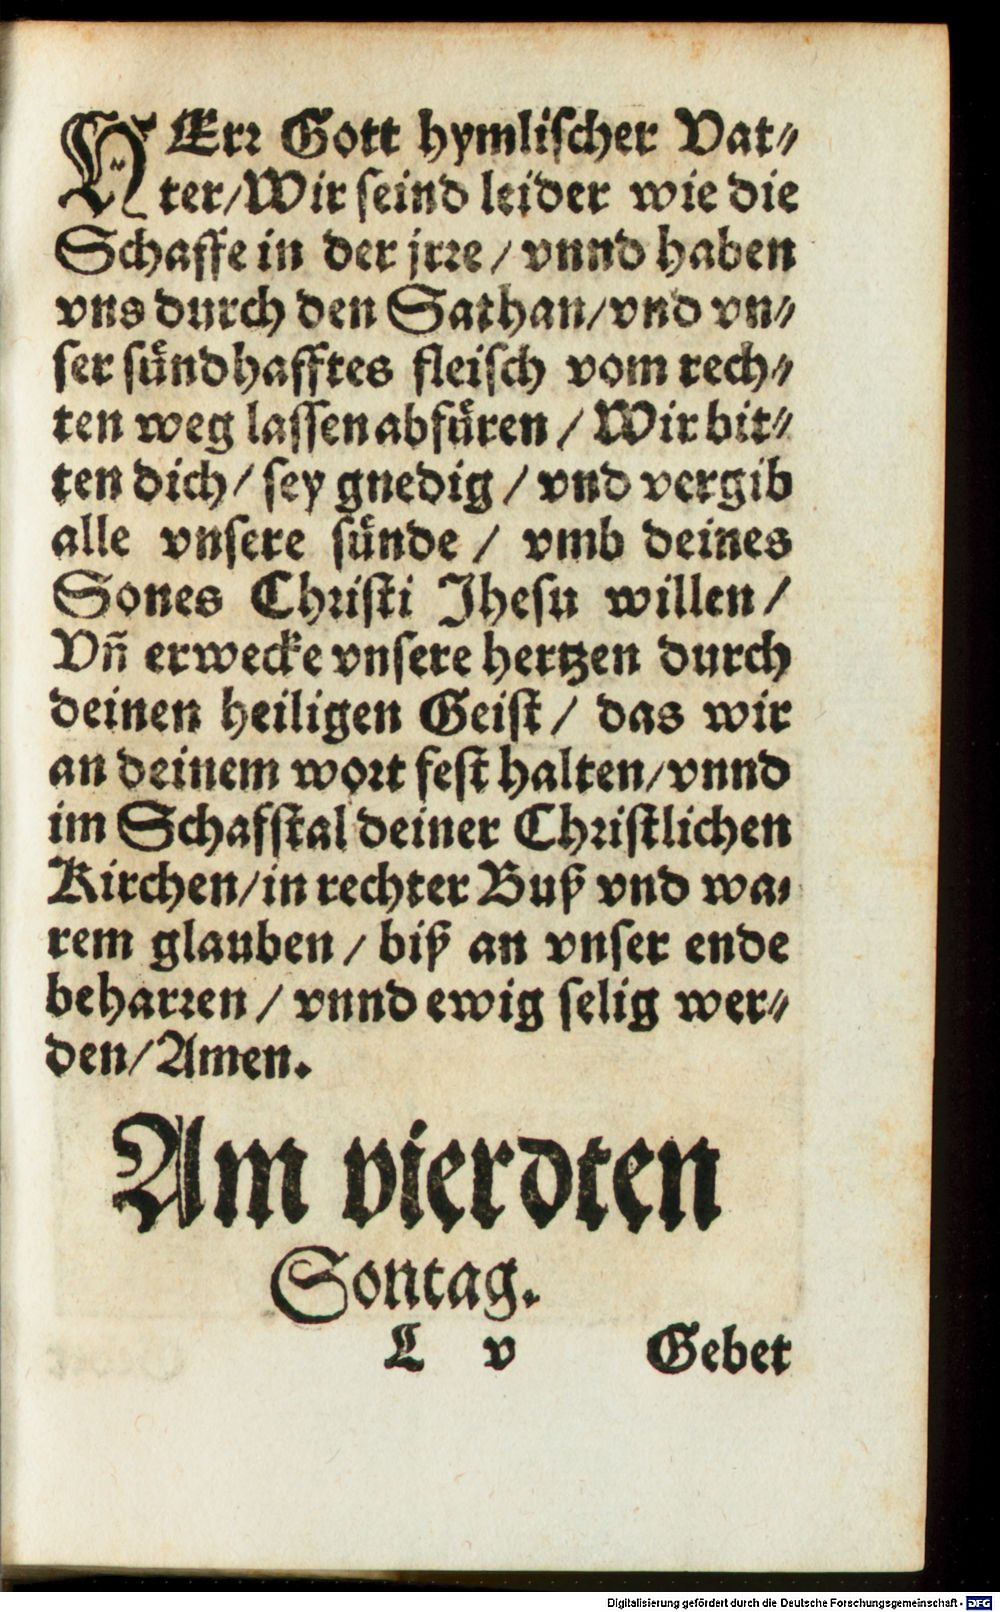 HErr Gott hymlischer Vat⸗
ter/Wir seind leider wie die
Schaffe in der jrre / vnnd haben
vns durch den Sathan/vnd vn⸗
ser sündhafftes fleisch vom rech⸗
ten weg lassen abfüren / Wir bit⸗
ten dich/ sey gnedig / vnd vergib
alle vnsere sünde / vmb deines
Sones Christi Jhesu willen /
Vñ erwecke vnsere hertzen durch
deinen heiligen Geist / das wir
an deinem wort fest halten/vnnd
im Schafstal deiner Christlichen
Kirchen/in rechter Buß vnd wa⸗
rem glauben / biß an vnser ende
beharren / vnnd ewig selig wer⸗
den/Amen.
Am vierdten
Sontag.
L v Gebet
Digitalisierung gefördert durch die Deutsche Forschungsgemeinschaft - DFG